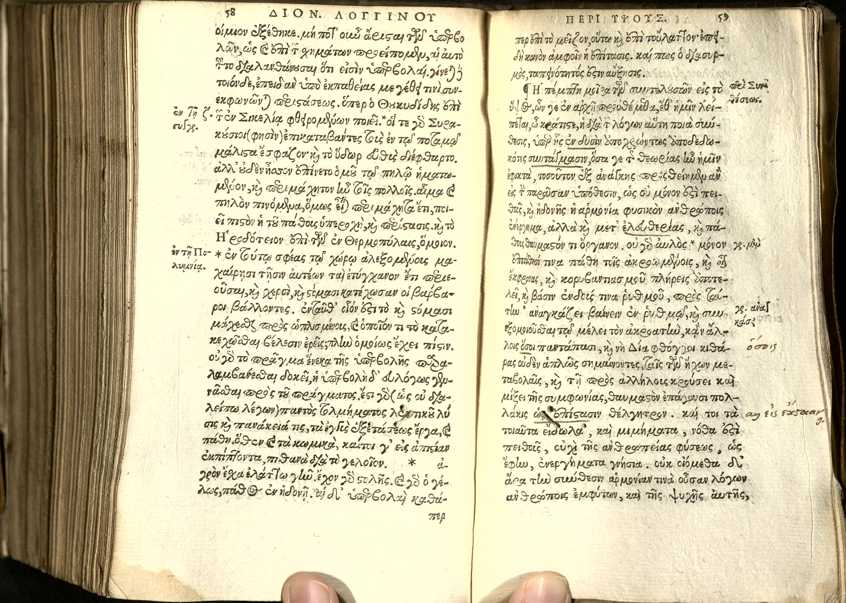 58 ΔΙΟΝ. ΛΟΓΓΙΝΟΥ
οίμιον ἐξέθηκε. μή ποτ' οὖν ἄρισται τῶν ὑπερβο-
λῶν, ὡς καὶ ἐπὶ τ̃ σχημάτων προείπομεν, αἱ αὐτὸ
τ̃το διαλανθάνουσαι ὅτι εἰσὶν ὑπερβολαί, γίνεται δὲ
τοιόνδε, ἐπειδὰν ὑπὸ ἐκπαθείας μεγέθει τινὶ συν-
εκφωνῶνται περιστάσεως. ὅπερ ὁ Θουκυδίδης ἐπὶ
τ̃ ἐν Σικελίᾳ φθειρομένων ποιεῖ. οἵ τε γὰρ Συρα-
κούσιοι (φησὶν) ἐπικαταβάντες τοὺς ἐν τῷ ποταμῷ
μάλιστα ἔσφαζον· καὶ τὸ ὕδωρ εὐθὺς διέφθαρτο.
ἀλλ' οὐδὲν ἧσσον ἐπίνετο ὁμοῦ τῷ πηλῷ ᾑματω-
μένον, καὶ περιμάχητον ἦν τοῖς πολλοῖς. αἷμα καὶ
πηλὸν πινόμενα, ὅμως εἶναι περιμάχητα ἔτι, ποι-
εῖ πιστὸν ἡ τοῦ πάθους ὑπεροχὴ, καὶ περίστασις. καὶ τὸ
Ἡροδότειον ἐπὶ τῶν ἐν Θερμοπύλαις, ὅμοιον.
* ἐν τούτῳ σφέας τῷ χώρῳ ἀλεξομένους μα-
χαίρῃσι τῇσιν αὐτέων ταὶ ἐτύγχανον ἔτι περιε-
οῦσαι, καὶ χερσὶ, καὶ στόμασι κατέχωσαν οἱ βάρβα-
ροι βάλλοντες. ἐνταῦθ' οἷόν ἐστι τὸ καὶ στόμασι
μάχεσθαι πρὸς ὡπλισμένους, καὶ ὁποῖόν τι τὸ κατα-
κεχῶσθαι βέλεσιν ἐρεῖς. πλὴν ὁμοίως ἔχει πίστιν.
οὐ γὰρ τὸ πρᾶγμα ἕνεκα τῆς ὑπερβολῆς παρα-
λαμβάνεσθαι δοκεῖ, ἡ ὑπερβολὴ δ' εὐλόγως γεν-
νᾶσθαι πρὸς τοῦ πράγματος. ἔστι γὰρ (ὡς οὐ δια-
λείπω λέγων) παντὸς τολμήματος λεκτικοῦ λύ
σις καὶ πανάκειά τις, τὰ ἐγγὺς ἐξετάσεως ἔργα, καὶ
πάθη. ὅθεν καὶ τὰ κωμικὰ, καίτοι γ' εἰς ἀπιστίαν
ἐκπίπτοντα, πιθανὰ διὰ τὸ γελοῖον. * ἀ-
γρὸν ἔχ' ἐλάττω γῆν ἔχον γὰρ στολῆς. καὶ γὰρ ὁ γέ-
λως, πάθος ἐν ἡδονῇ. αἱ δ' ὑπερβολαὶ καθά-
περ
ἐν τῇ Πο-
λυμνίᾳ.
ΠΕΡΙ ΥΨΟΥΣ. 59
περ ἐπὶ τὸ μεῖζον, οὕτω καὶ ἐπὶ τοὔλαττον· ἐπει-
δὴ κοινὸν ἀμφοῖν ἡ ἐπίτασις. καί πως ὁ διασυρ-
μὸς, ταπεινότητός ἐστιν αὔξησις.
¶ Ἡ πέμπτη μοῖρα τῶν συντελουσῶν εἰς τὸ
ὕψος, ὧν γε ἐν ἀρχῇ προὐθέμεθα, ἔθ' ἡμῖν λεί-
πεται, ὦ κράτιστε, ἡ διὰ τ̃ λόγων αὕτη ποιὰ σύν-
θεσις. ὑπὲρ ἧς ἐν δυσὶν ἀποχρώντως ἀποδεδω-
κότες συντάγμασιν, ὅσα γε τ̃ θεωρίας ἦν ἡμῖν
ἐφικτὰ, τοσοῦτον ἐξ ἀνάγκης προσθείημεν ἂν
εἰς τ̃ παροῦσαν ὑπόθεσιν, ὡς οὐ μόνον ἐστὶ πει-
θοῦς, καὶ ἡδονῆς ἡ ἁρμονία φυσικὸν ἀνθρώποις
ἐνέργημα, ἀλλὰ καὶ μετ' ἐλευθερίας, καὶ πά-
θους θαυμαστόν τι ὄργανον. οὐ γὰρ αὐλὸς * μόνον
τινὰ πάθη τοῖς ἀκροωμένοις, καὶ οἷον
ἔκφρονας, καὶ κορυβαντιασμοῦ πλήρεις ἀποτε-
λεῖ, καὶ βάσιν ἐνδούς τινα ῥυθμοῦ, πρὸς ταύ-
την * ἀναγκάζει βαίνειν ἐν ῥυθμῷ, καὶ συν-
εξομοιοῦσθαι τῷ μέλει τὸν ἀκροατὴν, κἂν ἄλ-
λους ὅσοι παντάπασι, καὶ νὴ Δία φθόγγοι κιθά-
ρας οὐδὲν ἁπλῶς σημαίνοντες, ταῖς τῶν ἤχων με-
ταβολαῖς, καὶ τῇ πρὸς ἀλλήλους κρούσει καὶ
μίξει τῆς συμφωνίας, θαυμαστὸν ἐπάγουσι πολ-
λάκις ὡς ἐπίστασιν θέλγητρον. καί τοι τὰ
τοιαῦτα εἴδωλα, καὶ μιμήματα, νόθα ἐστὶ
πειθοῦς, οὐχὶ τῆς ἀνθρωπείας φύσεως, ὡς
ἔφην, ἐνεργήματα γνήσια. οὐκ οἰόμεθα δ'
ἄρα τὴν σύνθεσιν ἁρμονίαν τινὰ οὖσαν λόγων
ἀνθρώποις ἐμφύτων, καὶ τῆς ψυχῆς αὐτῆς,
περὶ Συν-
θέσεως.